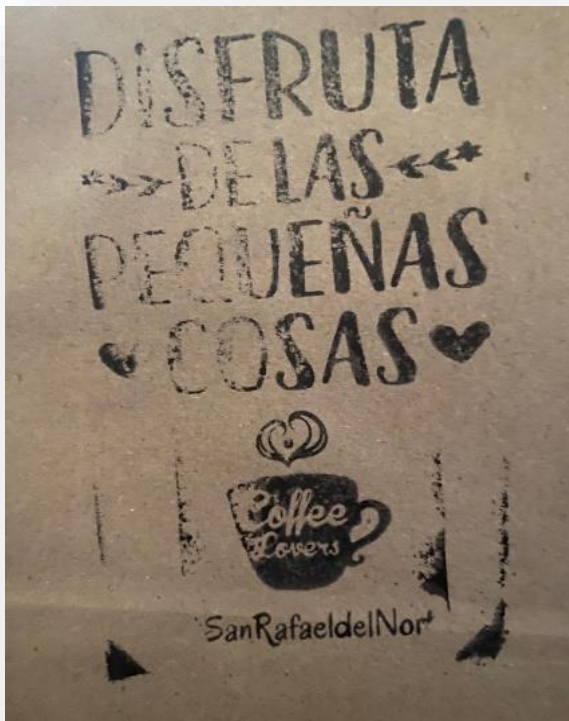 DISFRUTA
DE LAS
PEQUEÑAS
COSAS
Coffee
Lovers
SanRafaeldelNor